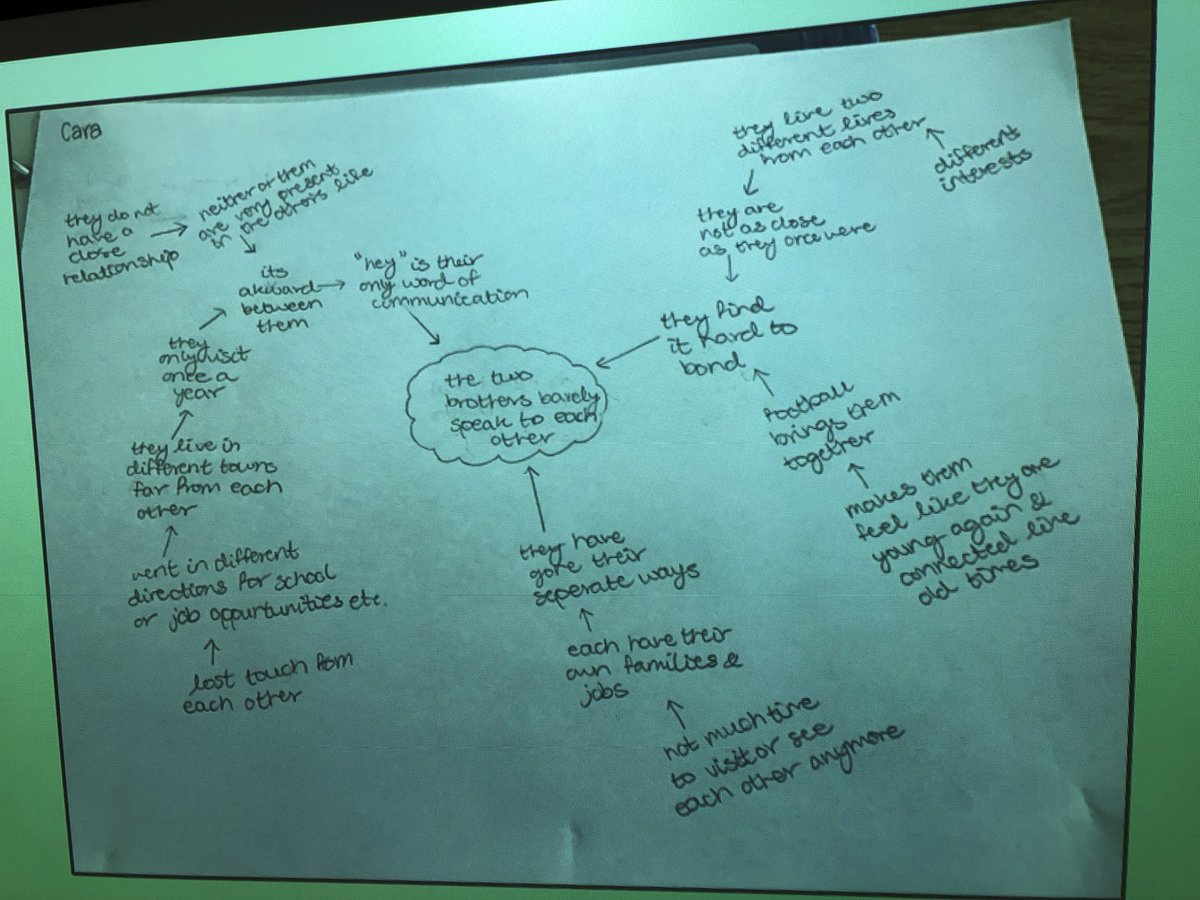 Cara
they do not
have a
close
relationship
neither of them
are very present
in the others life
its
akward
between
them
"hey" is their
only word of
communication
they
only visit
once a
year
they live in
different towns
far from each
other
went in different
directions for school
or job oppurtunities etc.
lost touch from
each other
the two
brothers barely
speak to each
other
they live two
different lives
from each other
different
interests
they are
not as close
as they once were
they find
it hard to
bond
football
brings them
together
makes them
feel like they are
young again &
connected like
old times
they have
gone their
seperate ways
each have their
own families &
jobs
not much time
to visit or see
each other anymore